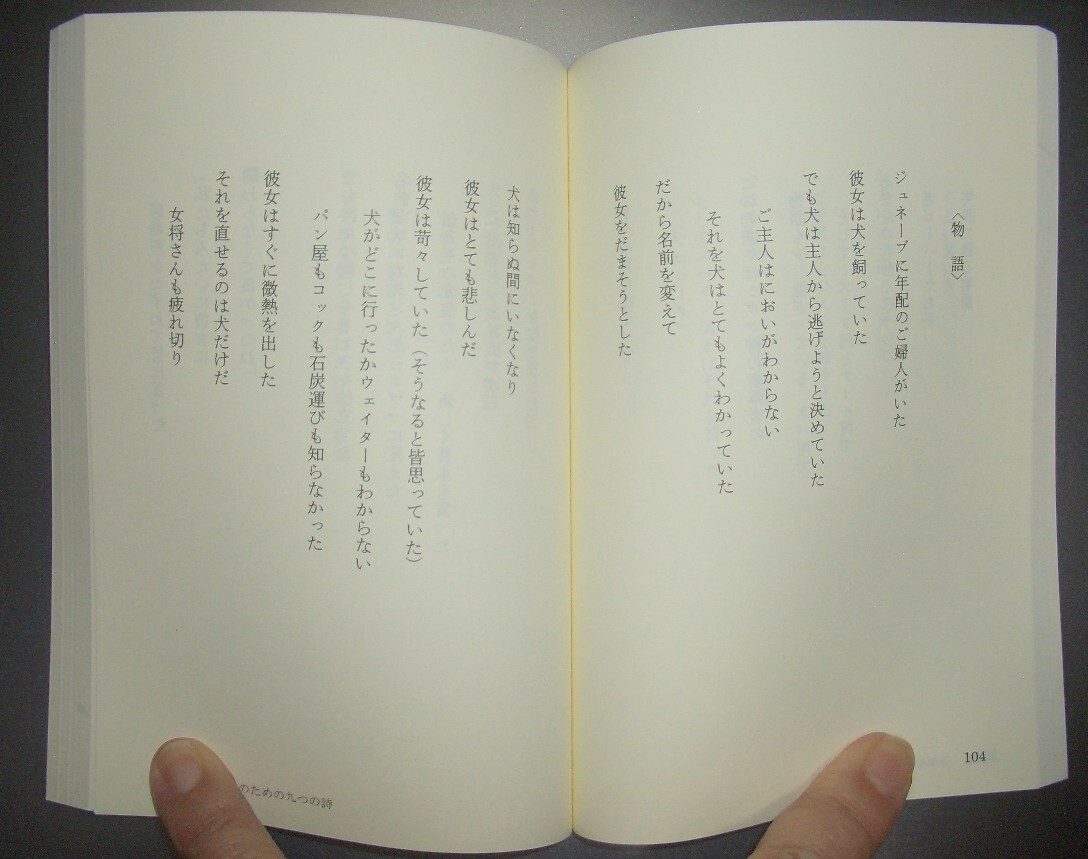 〈物語〉
ジュネーブに年配のご婦人がいた
彼女は犬を飼っていた
でも犬は主人から逃げようと決めていた
ご主人はにおいがわからない
それを犬はとてもよくわかっていた
だから名前を変えて
彼女をだまそうとした
104
犬は知らぬ間にいなくなり
彼女はとても悲しんだ
彼女は苛々していた（そうなると皆思っていた）
犬がどこに行ったかウェイターもわからない
パン屋もコックも石炭運びも知らなかった
彼女はすぐに微熱を出した
それを直せるのは犬だけだ
女将さんも疲れ切り
のための九つの詩